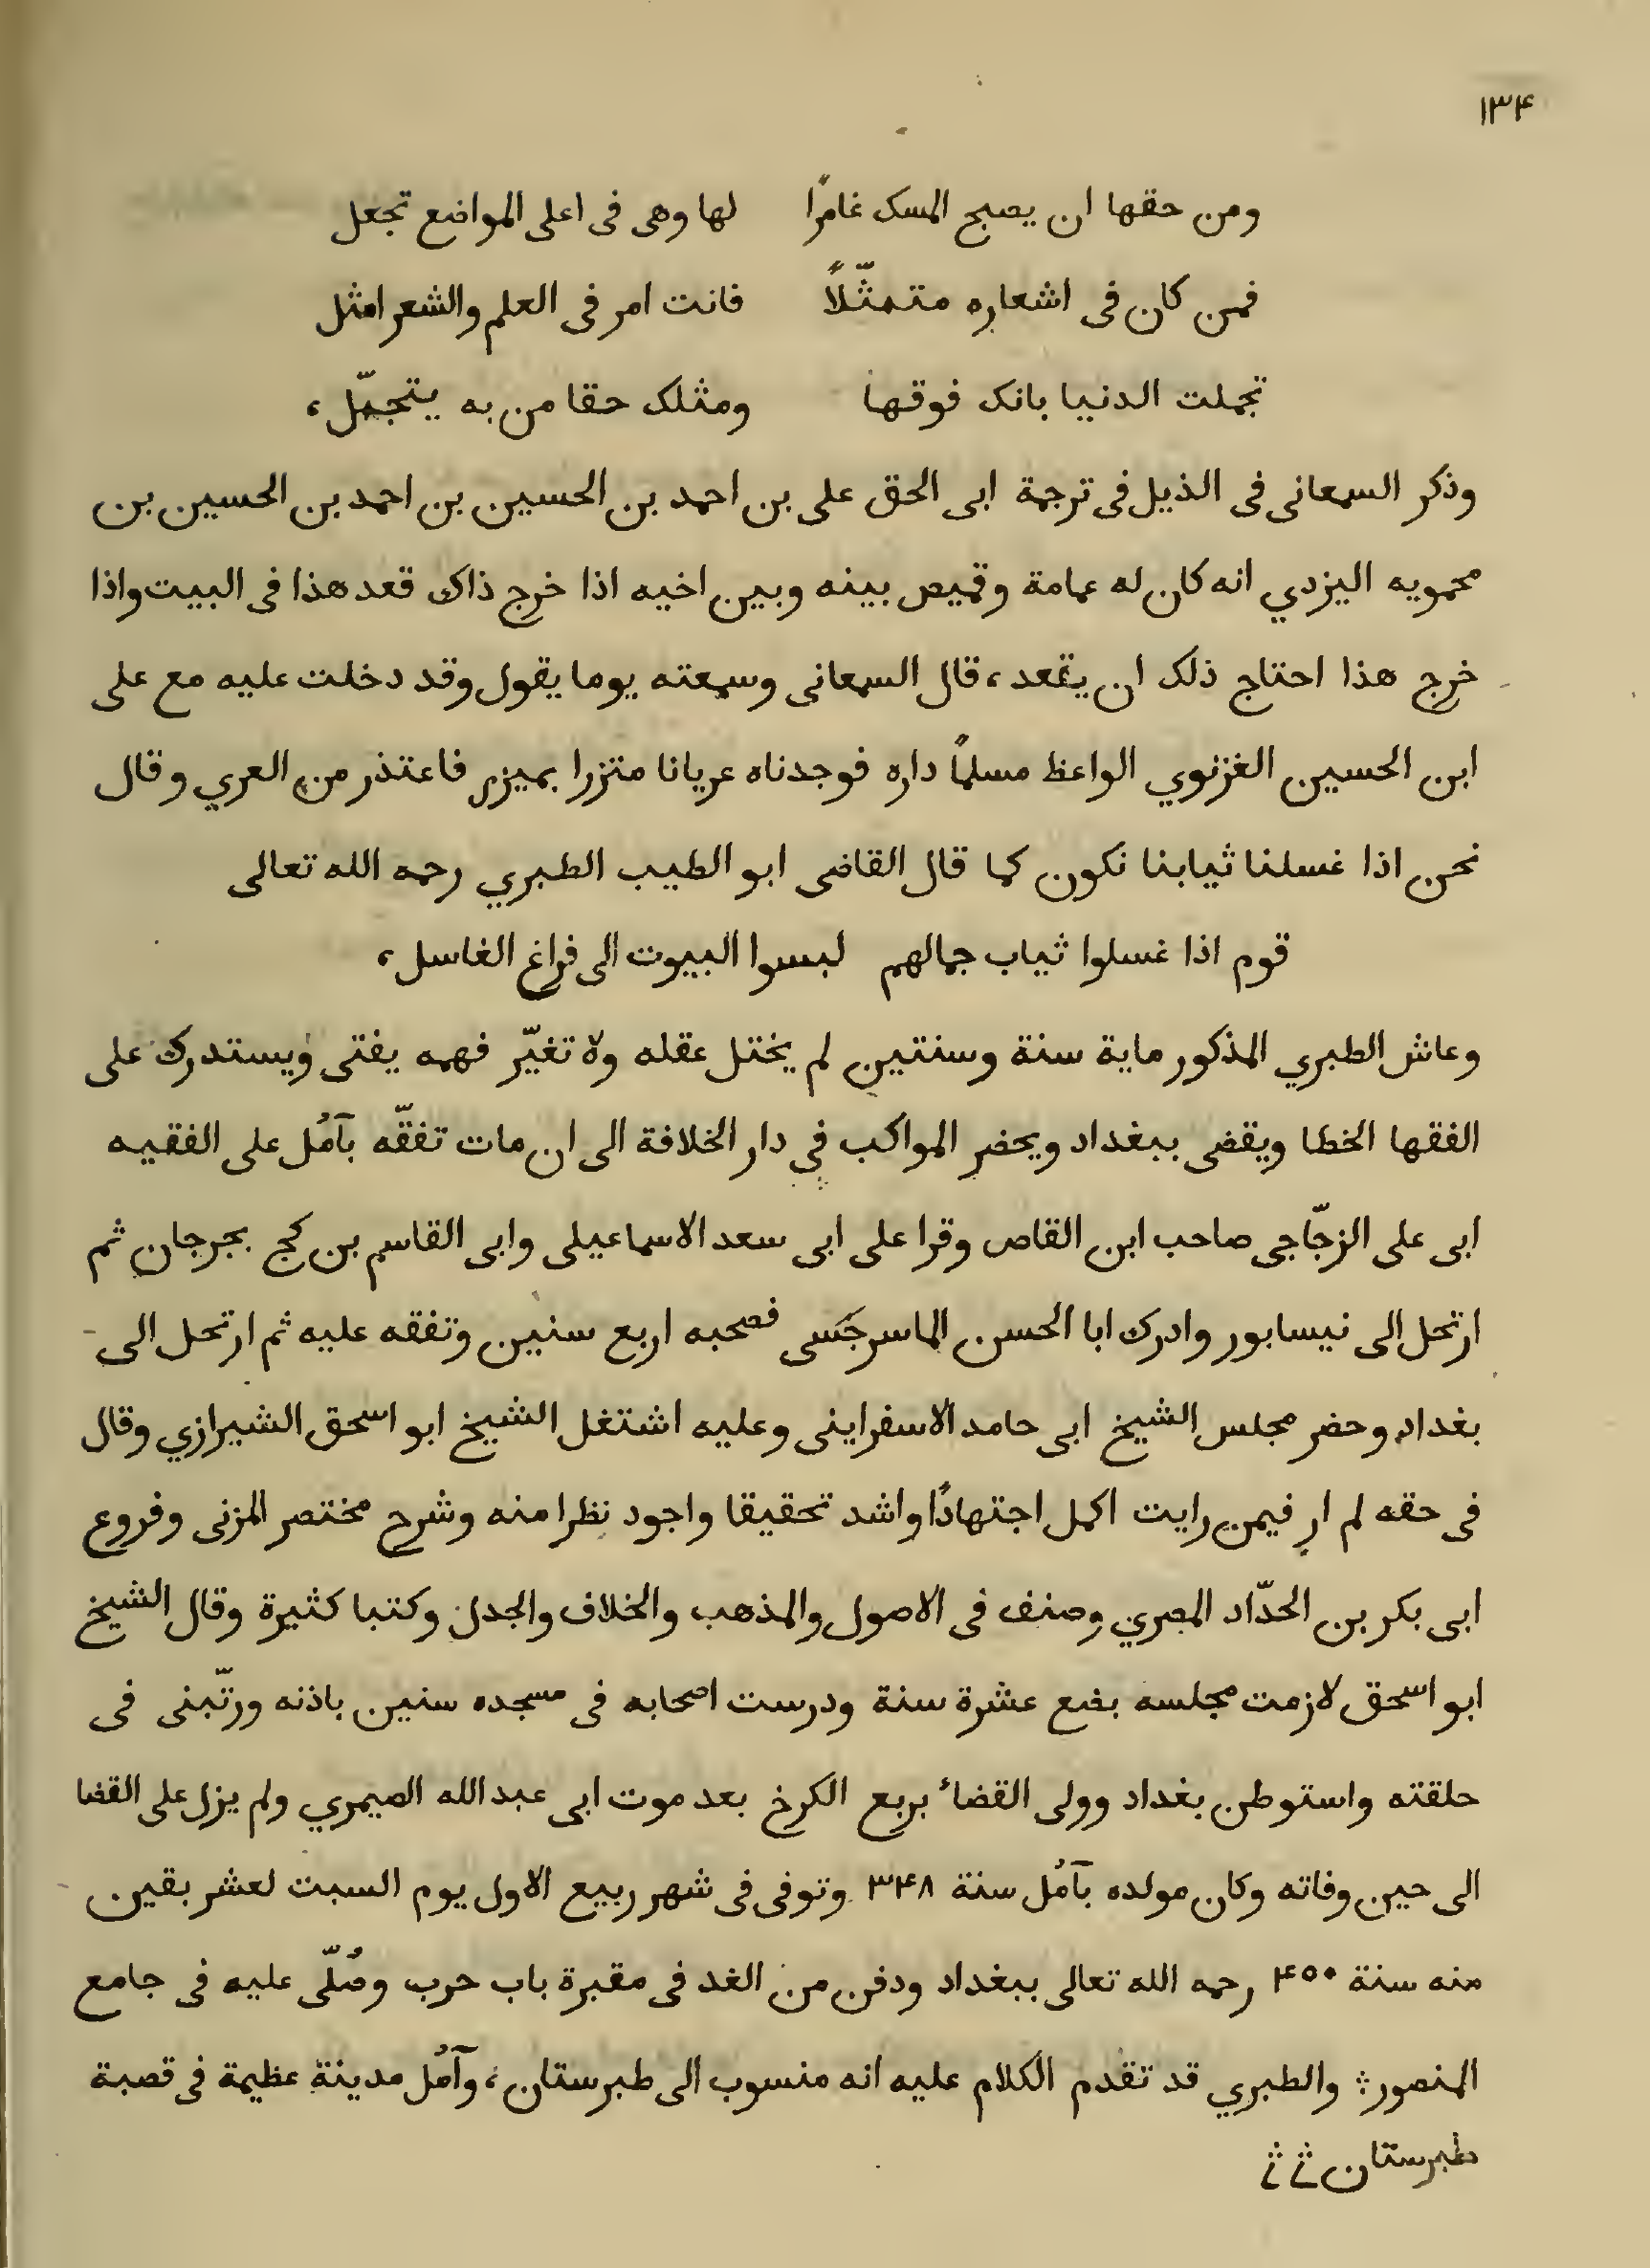 ١٣۴
ومن حقها ان يصبح المسک غامرًا لها وهى فى اعلى المواضع تجعل
فمن كان فى اشعاره متمثّلاً فانت امر فى العلم والشعر امثل
تجملت الدنيا بانک فوقها ومثلک حقا من به يتجمّل،
وذكر السمعانى فى الذيل فى ترجمة ابى الحق على بن احمد بن الحسين بن احمد بن الحسين بن
محمويه اليزدي انه كان له عمامة وقميص بينه وبين اخيه اذا خرج ذاك قعد هذا فى البيت واذا
خرج هذا احتاج ذلک ان يقعد، قال السمعانى وسمعته يوما يقول وقد دخلت عليه مع على
ابن الحسين الغزنوي الواعظ مسلمًا داره فوجدناه عريانا متزرا بميزر فاعتذر من العري وقال
نحن اذا غسلنا ثيابنا نكون كما قال القاضى ابو الطيب الطبري رحمه الله تعالى
قوم اذا غسلوا ثياب جمالهم لبسوا البيوت الى فراغ الغاسل،
وعاش الطبري المذكور ماية سنة وسنتين لم يختل عقله ولا تغيّر فهمه يفتى ويستدرك على
الفقها الخطا ويقضى ببغداد ويحضر المواكب في دار الخلافة الى ان مات تفقّه بآمُل على الفقيه
ابى على الزجّاجى صاحب ابن القاص وقرا على ابى سعد الاسماعيلى وابى القاسم بن كج بجرجان ثم
ارتحل الى نيسابور وادرك ابا الحسن الماسرجَسى فصحبه اربع سنين وتفقه عليه ثم ارتحل الى
بغداد وحضر مجلس الشيخ ابى حامد الاسفراينى وعليه اشتغل الشيخ ابو اسحق الشيرازي وقال
فى حقه لم ار فيمن رايت اكمل اجتهادًا واشد تحقيقا واجود نظرا منه وشرح مختصر المزنى وفروع
ابى بكر بن الحدّاد المصري وصنف فى الاصول والمذهب والخلاف والجدل وكتبا كثيرة وقال الشيخ
ابو اسحق لازمت مجلسه بضع عشرة سنة ودرست اصحابه فى مسجده سنين باذنه ورتّبنى فى
حلقته واستوطن بغداد وولى القضاء بربع الكرخ بعد موت ابى عبد الله الصيمري ولم يزل على القضا
الى حين وفاته وكان مولده بآمُل سنة ٣۴٨ وتوفى فى شهر ربيع الاول يوم السبت لعشر بقين
منه سنة ۴٥٠ رحمه الله تعالى ببغداد ودفن من الغد فى مقبرة باب حرب وصُلّى عليه فى جامع
المنصور؛ والطبري قد تقدم الكلام عليه انه منسوب الى طبرستان، وآمُل مدينة عظيمة فى قصبة
طبرستان